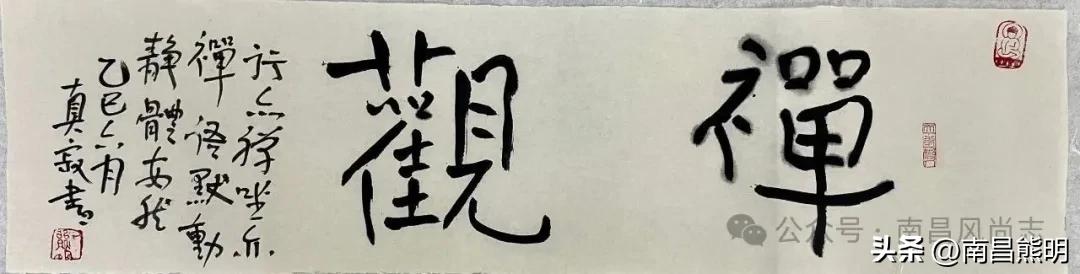 禪觀
行亦禪坐亦
禪語默動
静體安然
乙巳六月
真寂書
公众号·南昌风尚志
头条@南昌熊明